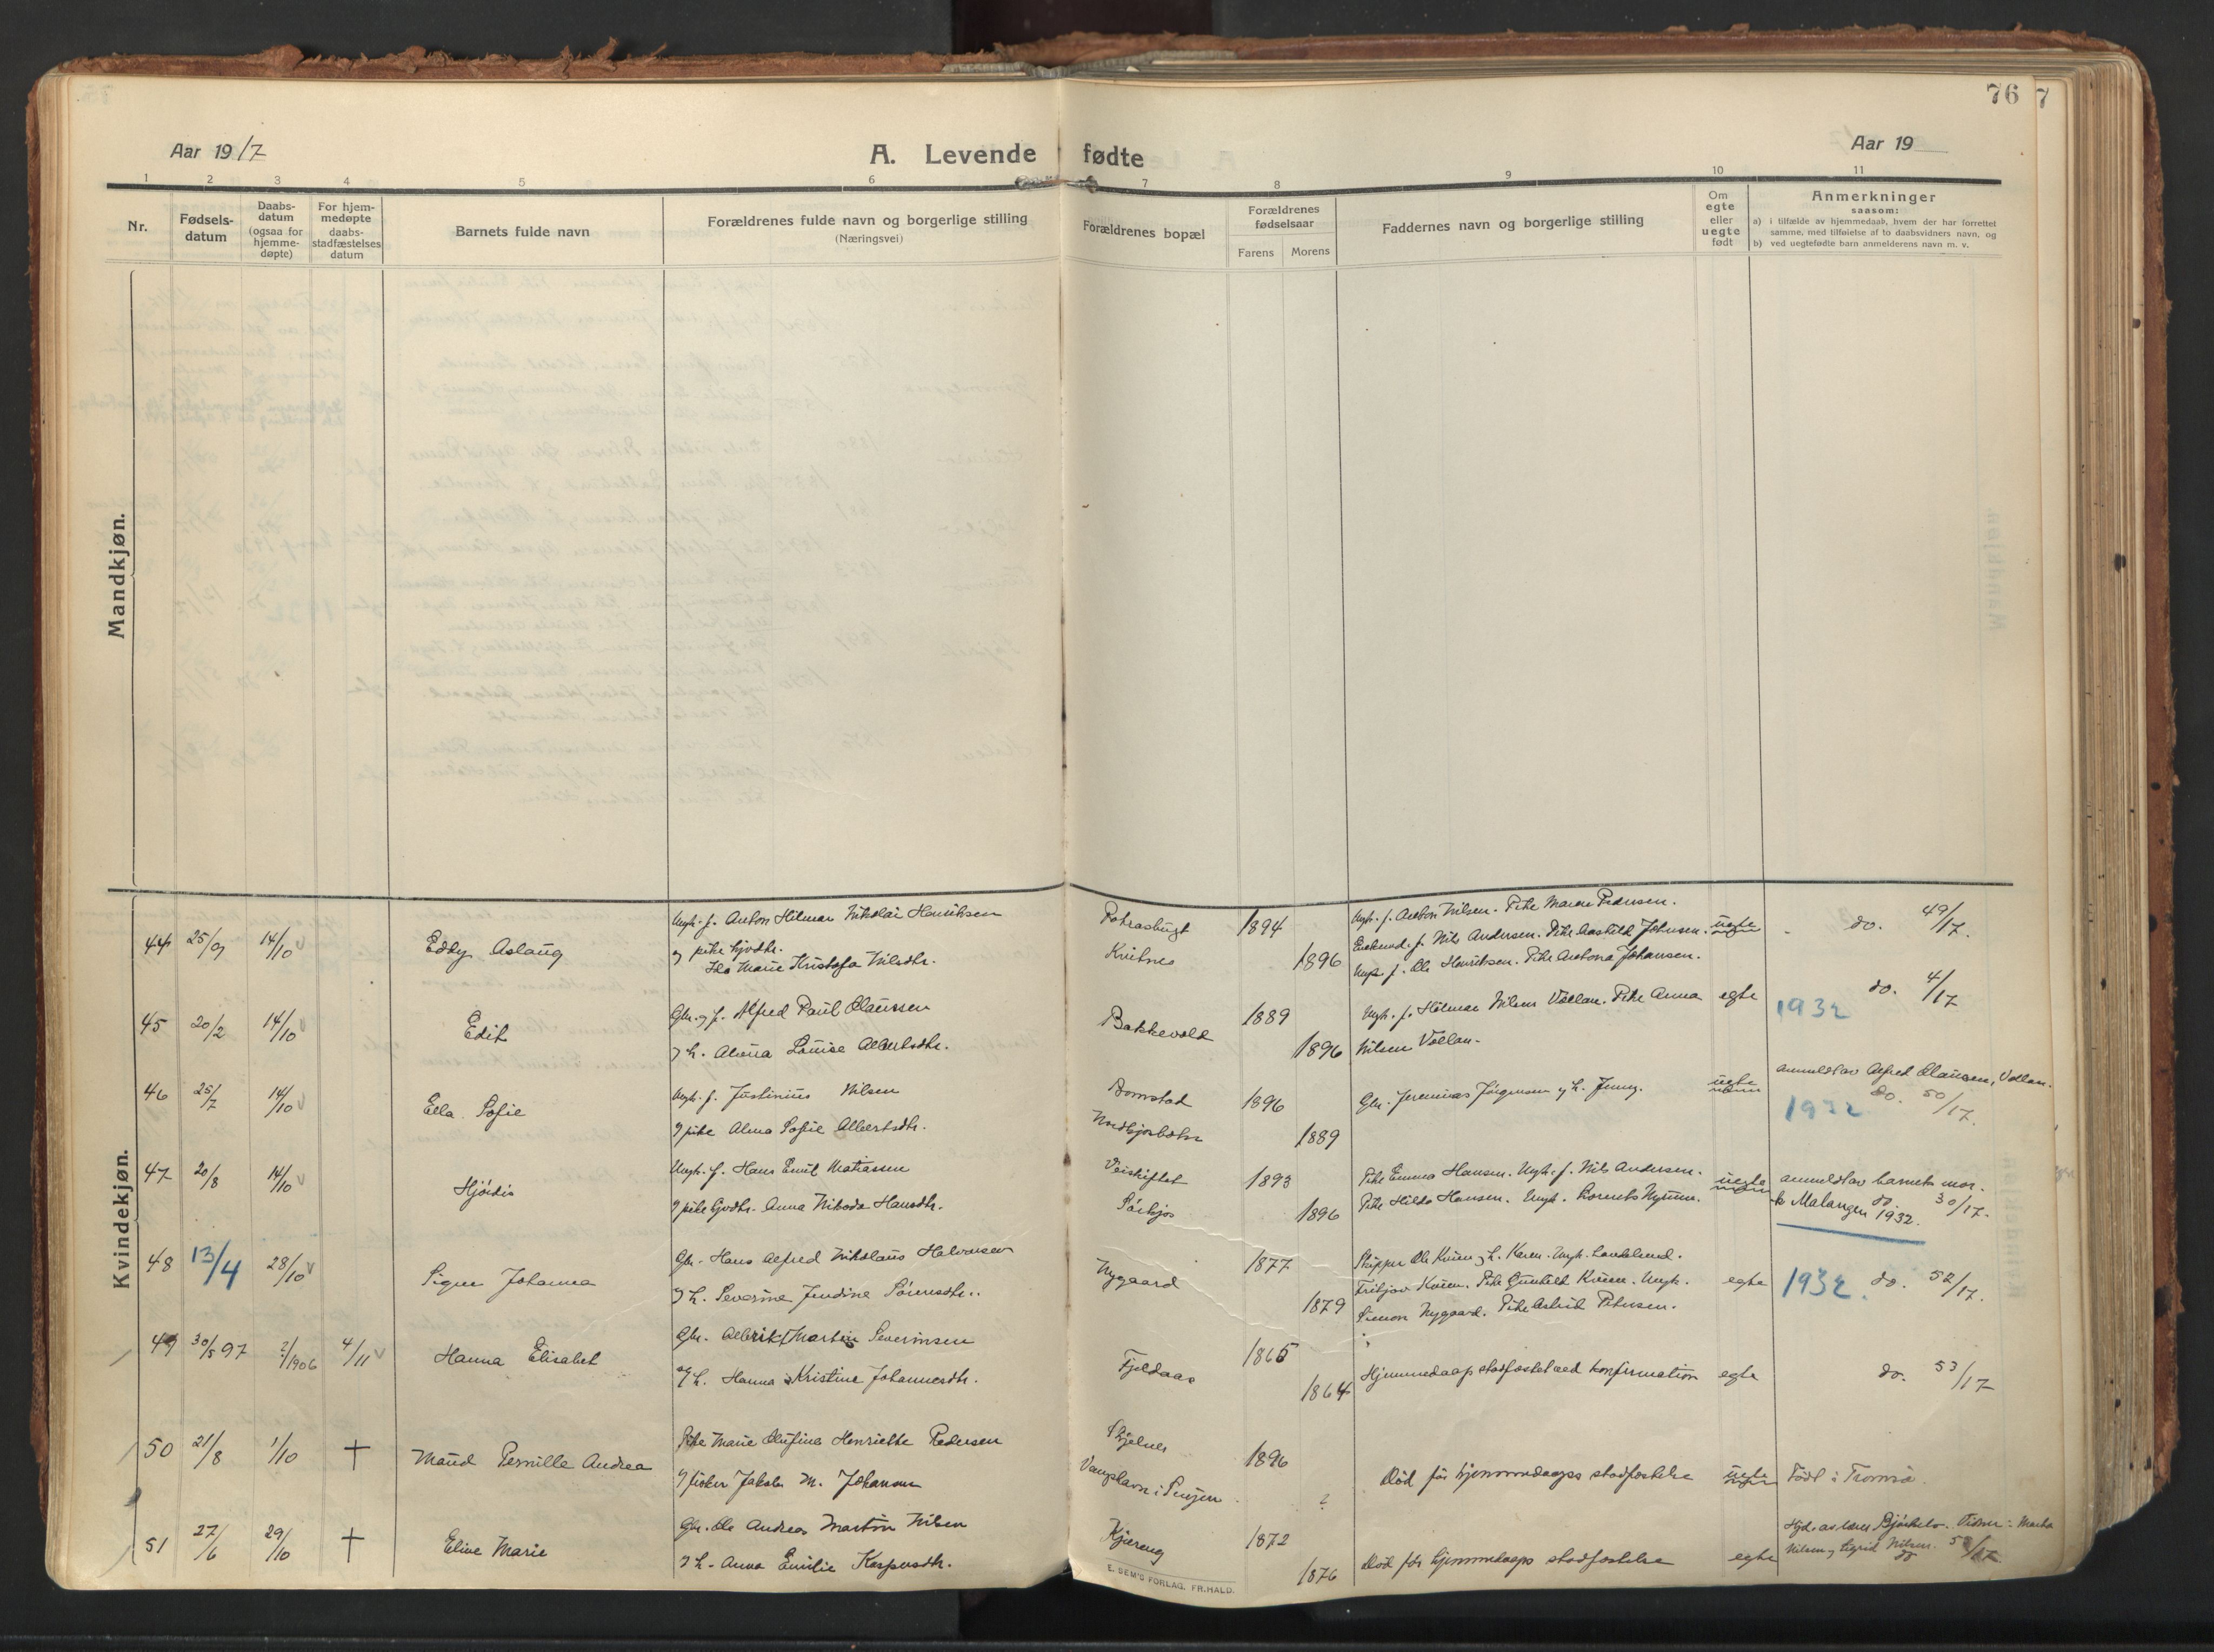 76 7
Aar 1917
A. Levende fødte
Aar 19
1 2 3 4 5 6 7 8 9 10 11
Nr.
Fødsels-
datum
Daabs-
datum
(ogsaa for
hjemme-
døpte)
For hjem-
medøpte
daabs-
stadfæstelses
datum
Barnets fulde navn
Forældrenes fulde navn og borgerlige stilling
(Næringsvei)
Forældrenes bopæl
Forældrenes
fødselsaar
Farens Morens
Faddernes navn og borgerlige stilling
Om
egte
eller
uegte
født
Anmerkninger
saasom:
a) i tilfælde av hjemmedaab, hvem der har forrettet
samme, med tilføielse af to daabsvidners navn, og
b) ved uegtefødte barn anmelderens navn m. v.
Mandkjøn.
Kvindekjøn.
44 25/9 14/10 Edby Aslaug
Ungk. f. Anton Hilmar Nikolai Henriksen
og pike Gjvdtr.
Ida Marie Kristofa Nilsdtr.
Kvitnes
1894
1896
Ungk. f. Anton Nilsen. Pike Maren Pedersen.
Enkemd. f. Nils Andersen. Pike Aashild Johnsen.
Ungk. f. Ole Henriksen. Pike Antona Johansen.
uegte
do. 49/17.
45 20/2 14/10 Edit
Gbr. og f. Alfred Paul Claussen
og h. Alvina Louise Albertsdtr.
Bakkevold
1889
1896
Ungk. f. Hilmar Nilsen Vollan. Pike Anna
Nilsen Vollan.
egte
1932 do. 4/17
46 25/7 14/10 Ella Sofie
Ungk. f. Justinius Nilsen
og pike Alma Sofie Albertsdtr.
Domstad
Nordkjosbotn
1896
1889
Gbr. Jeremias Jørgensen og h. Jenny.
uegte
anmeldt av Alfred Clausen, Vollan.
1932 do. 50/17.
47 20/8 14/10 Hjördis
Ungk. f. Hans Emil Matiassen
og pike Gvdtr. Anna Nikoda Hansdtr.
Veiskiftet
Sörkjos
1893
1896
Pike Emma Hansen. Ungk. f. Nils Andersen.
Pike Hilda Hansen. Ungk. Lorents Nymme.
uegte
anmeldt av barnets mor.
do. 30/17.
k Malangen 1932.
48 13/4 28/10 Signe Johanna
Gbr. Hans Alfred Nikolaus Halvorsen
og h. Severine Jendine Sörensdtr.
Nygaard
1877
1879
Skipper Ole Kræn og h. Karen. Ungk.
Fritjov Kræn. Pike Gunhild Kræn. Ungk.
Simon Nygaard. Pike Astrid Petersen.
egte
1932. do. 52/17.
49 30/5 97 ?/1906 4/11 Hanna Elisabet
Gbr. Albrikt Martin Severinsen
og h. Hanna Kristine Johannesdtr.
Fjeldaas
1865
1864
Hjemmedaap stadfæstet ved konfirmation
egte
do. 53/17
50 21/8 1/10 † Maud Pernille Andrea
Pike Marie Olufine Henriette Pedersen
og fisker Jakob M. Johansen
Skjelnes
Vangshavn i Senjen
1896
?
Död för hjemmedaaps stadfæstelse
uegte
Födt i Tromsö
51 27/6 29/10 † Eline Marie
Gbr. Ole Andreas Martin Nilsen
og h. Anna Emilie Kaspersdtr.
Kjæreng
1872
1876
Död för hjemmedaaps stadfæstelse
egte
Hjd. av lærer Björklo. Vidner: Marta
Nilsen og Sigrid Nilsen.
do
E. SEM'S FORLAG, FR.HALD.